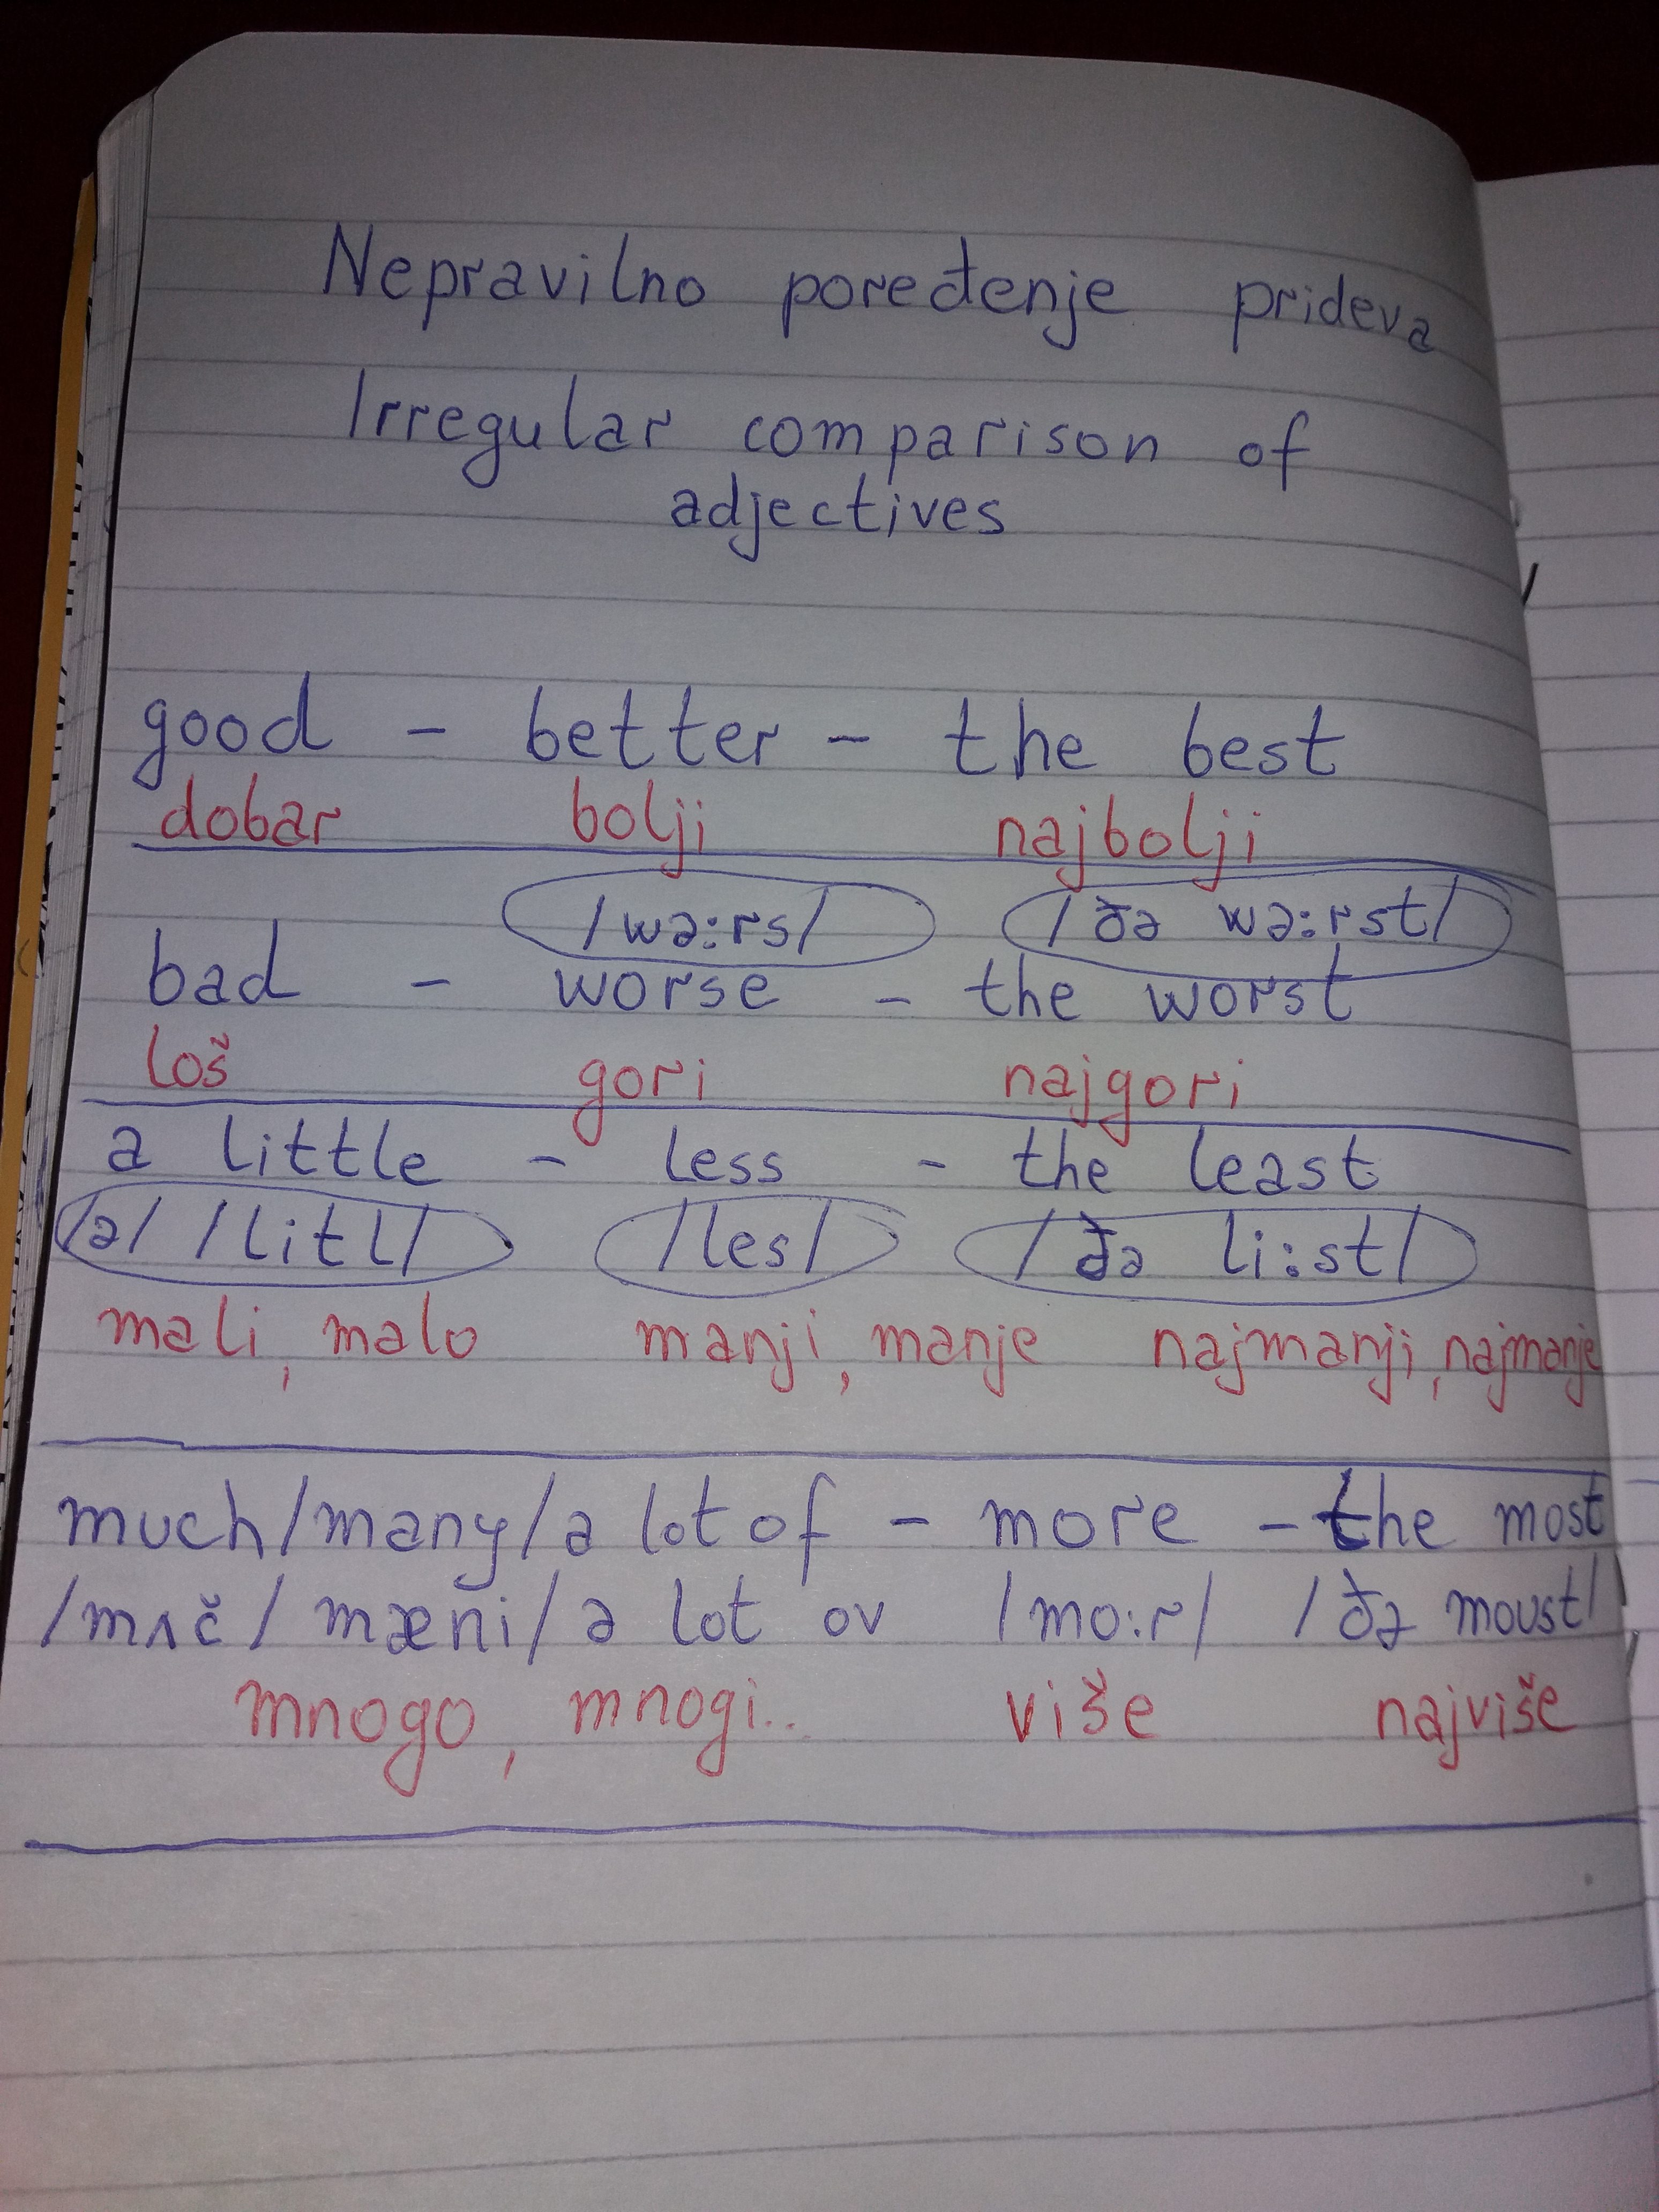 Nepravilno poređenje prideva
Irregular comparison of
adjectives
good – better – the best
dobar bolji najbolji
/wə:rs/ /ðə wə:rst/
bad – worse – the worst
loš gori najgori
a little – less – the least
/ə/ /litl/ /les/ /ðə li:st/
mali, malo manji, manje najmanji, najmanje
much/many/a lot of – more – the most
/mʌč/ mæni/ə lot ov /mo:r/ /ðə moust/
mnogo, mnogi.. više najviše